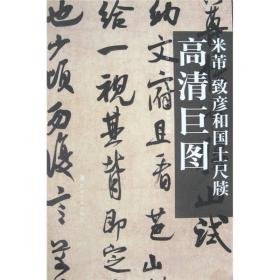 米芾 致彦和国士尺牍
高清巨图
山試
納文府且看芭山
給一視其背即定
也少頃勿復言